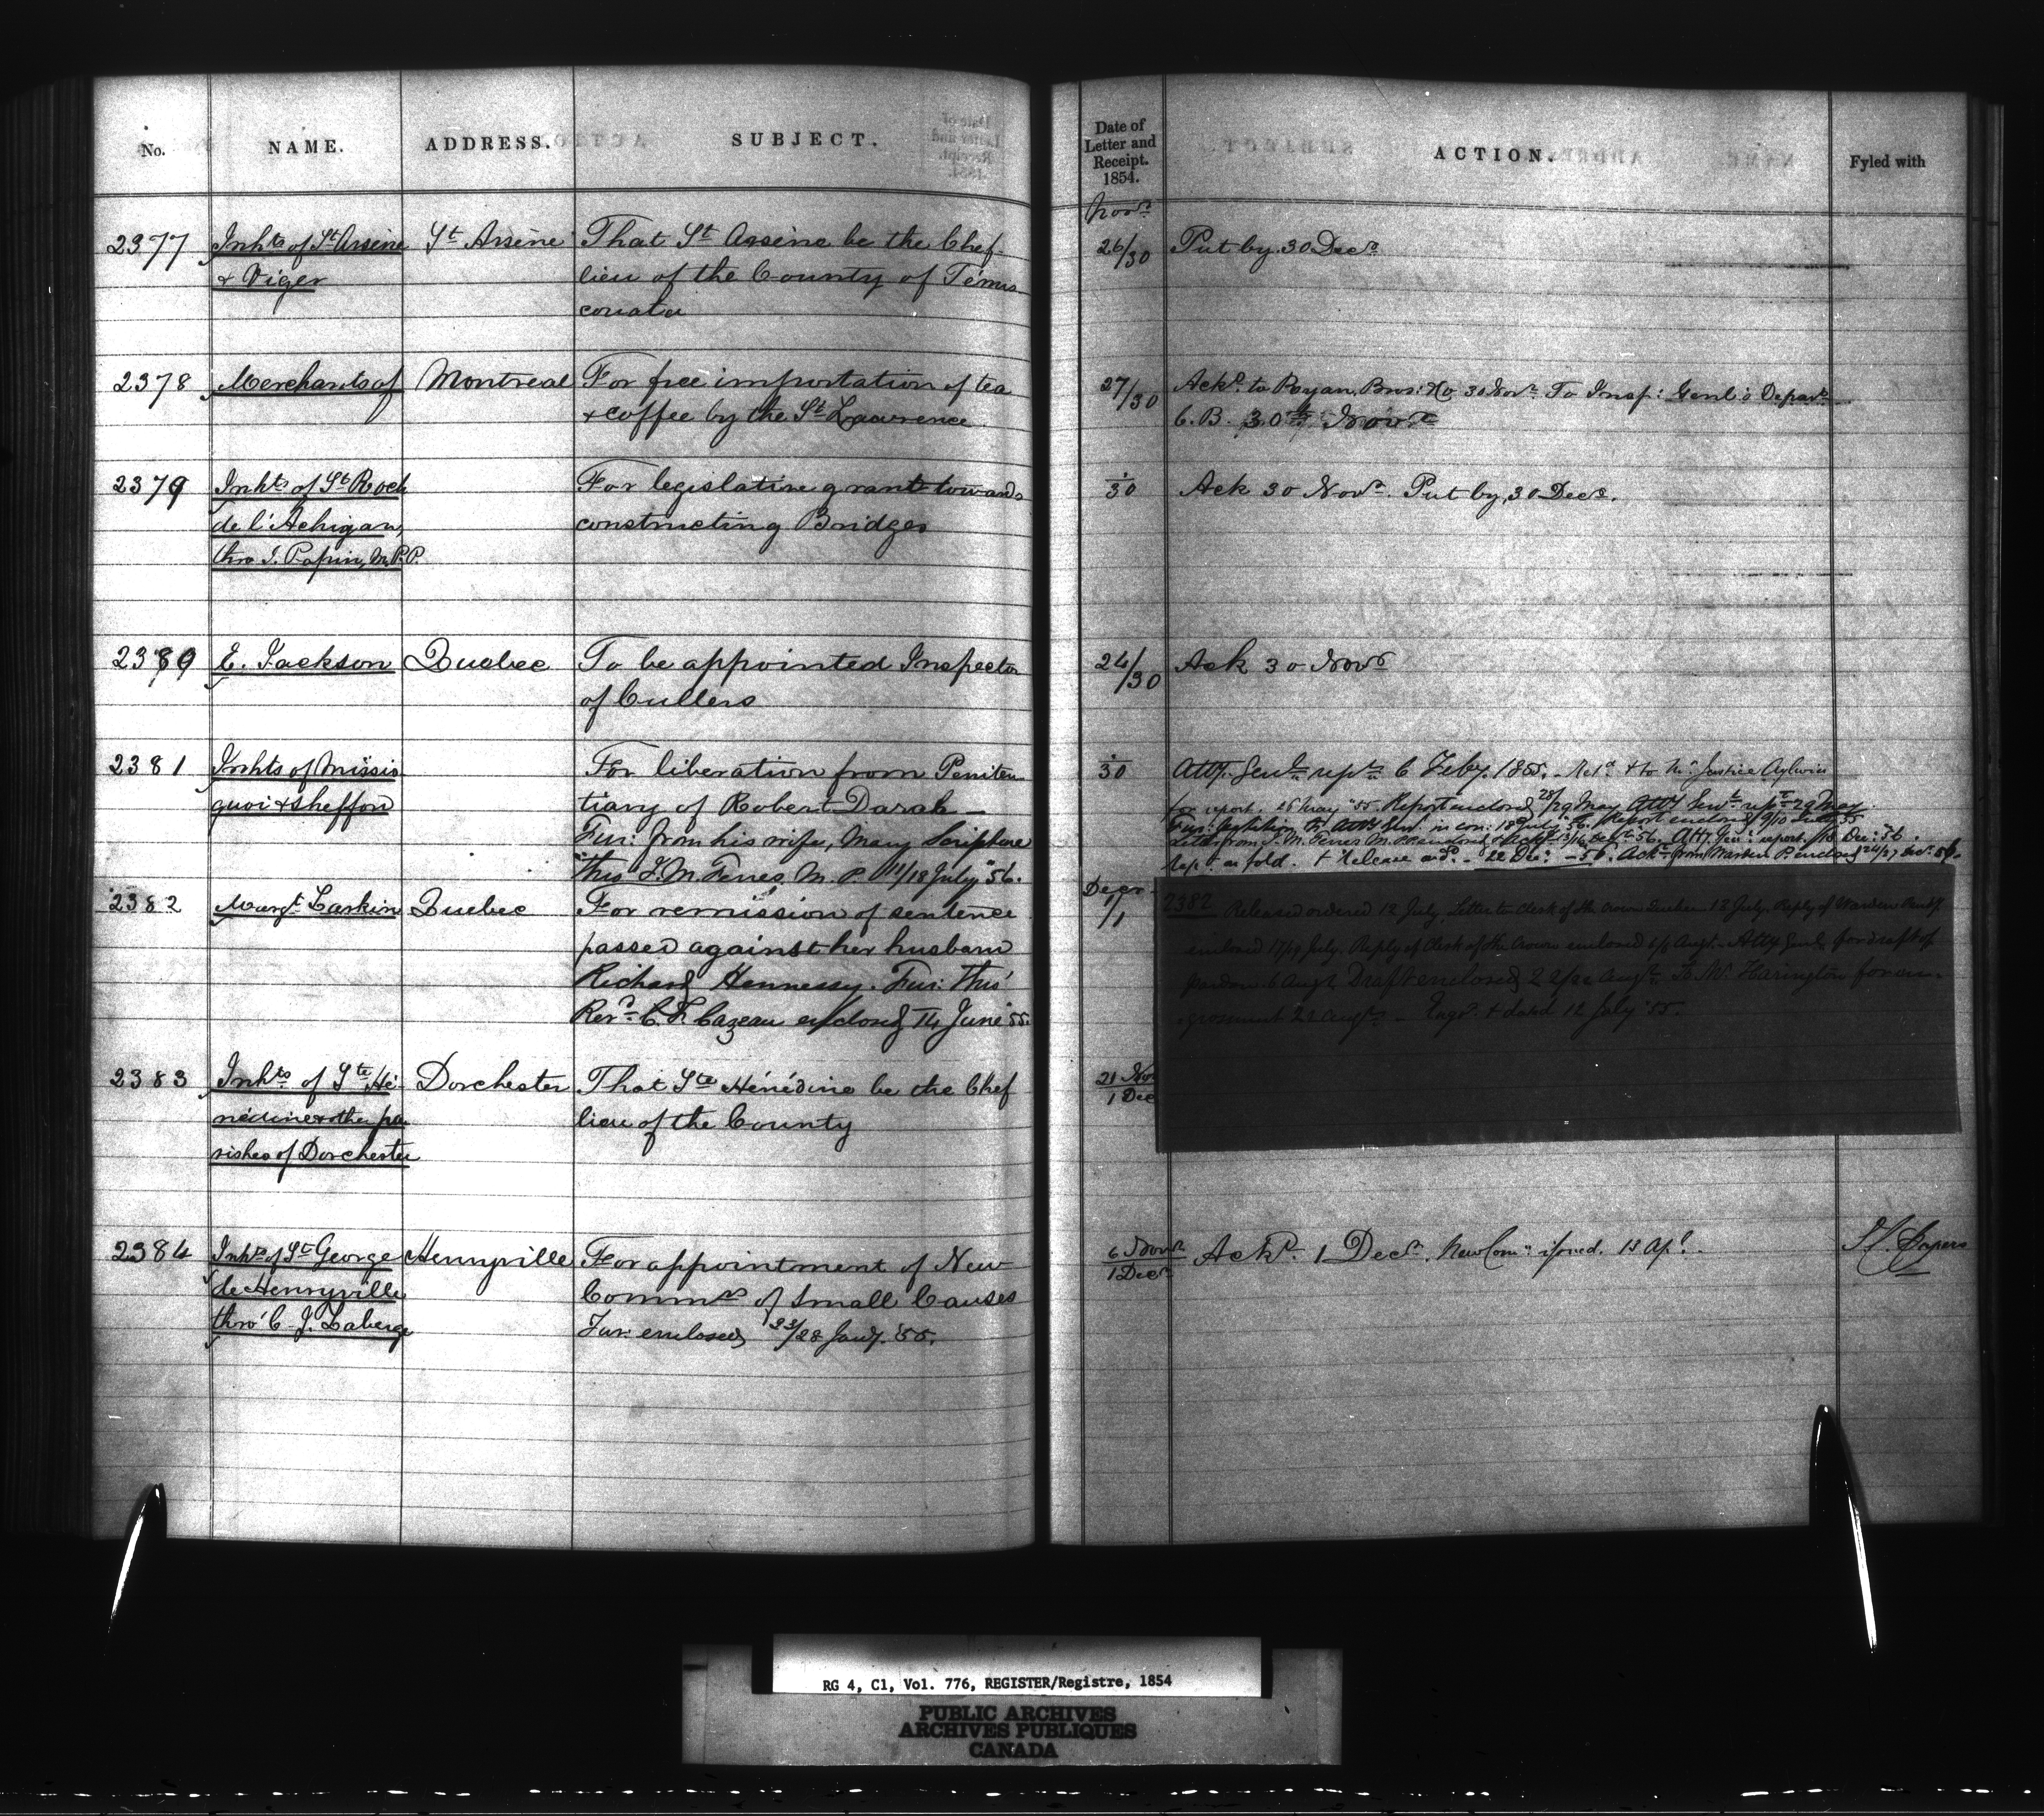 No. NAME. ADDRESS. SUBJECT.
2377 Inhts of St Arsène St Arsène That St Arsène be the Chef
& Viger lieu of the County of Témis
couata
2378 Merchants of Montreal For free importation of tea
& coffee by the St Lawrence
2379 Inhts of St Roch For legislative grant towards
de l'Achigan, constructing Bridges
thro J. Papin, M.P.P.
2380 E. Jackson Quebec To be appointed Inspector
of Cullers
2381 Inhts of Missis For liberation from Peniten
quoi & Sheffon tiary of Robert Darah
Fur: from his wife, Mary Scripture
thro J. M. Ferres, M. P. 11/18 July "56.
2382 Margt Larkin Quebec For remission of sentence
passed against her husband
Richard Hennessy. Fur: thro'
Revd C. F. Cazeau enclosed 14 June '55.
2383 Inhts of Ste Hé- Dorchester That Ste Hénédine be the Chef
nédine & other pa lieu of the County
rishes of Dorchester
2384 Inhts of St George Henryville For appointment of New
de Henryville Commrs of Small Causes
thro' C. J. Laberge Fur: enclosed 23/28 Jany. '55.
Date of
Letter and
Receipt.
1854. ACTION. Fyled with
Novr
26/30 Put by. 30 Decr
27/30 Ackd to Ryan, Bros: & Co 30 Novr To Insp: Genl's Depart
C. B. 30th Novr
30 Ack 30 Novr. Put by, 30 Decr.
24/30 Ack 30 Novr
30 Atty. Genl rept 6 Feby. 1855. Retd & to Mr. Justice Aylwin
for report. 25 May "55. Report enclosed 28/29 May. Atty Genl rept 29 May
Fur: petition to Atty Genl in con: 18 July "56. Report enclosed 9/10
Letter from J. M. Ferres M. P. 13/16 Sept 56. Atty Gen: report. 18 Dec: 56.
& Release 22 Dec: 56. Ackt from Warden P. enclosed 24/27 Dec: 56.
Decr
1/1 2382 Released ordered 12 July. Letter to Clerk of the Crown Quebec 12 July. Reply of Warden
enclosed 17/19 July. Reply of Clerk of the Crown enclosed Augt. Atty Genl for draft of
pardon 6 Augt Draft enclosed 22 Augt. To Mr. Harington for en-
grossment 22 Augt. Engd. & dated 12 July '55.
21 Nov
1 Dec
6 Novr
1 Decr Ackd. 1 Decr. New Com: issued. 13 Apl.
RG 4, C1, Vol. 776, REGISTER/Registre, 1854
PUBLIC ARCHIVES
ARCHIVES PUBLIQUES
CANADA